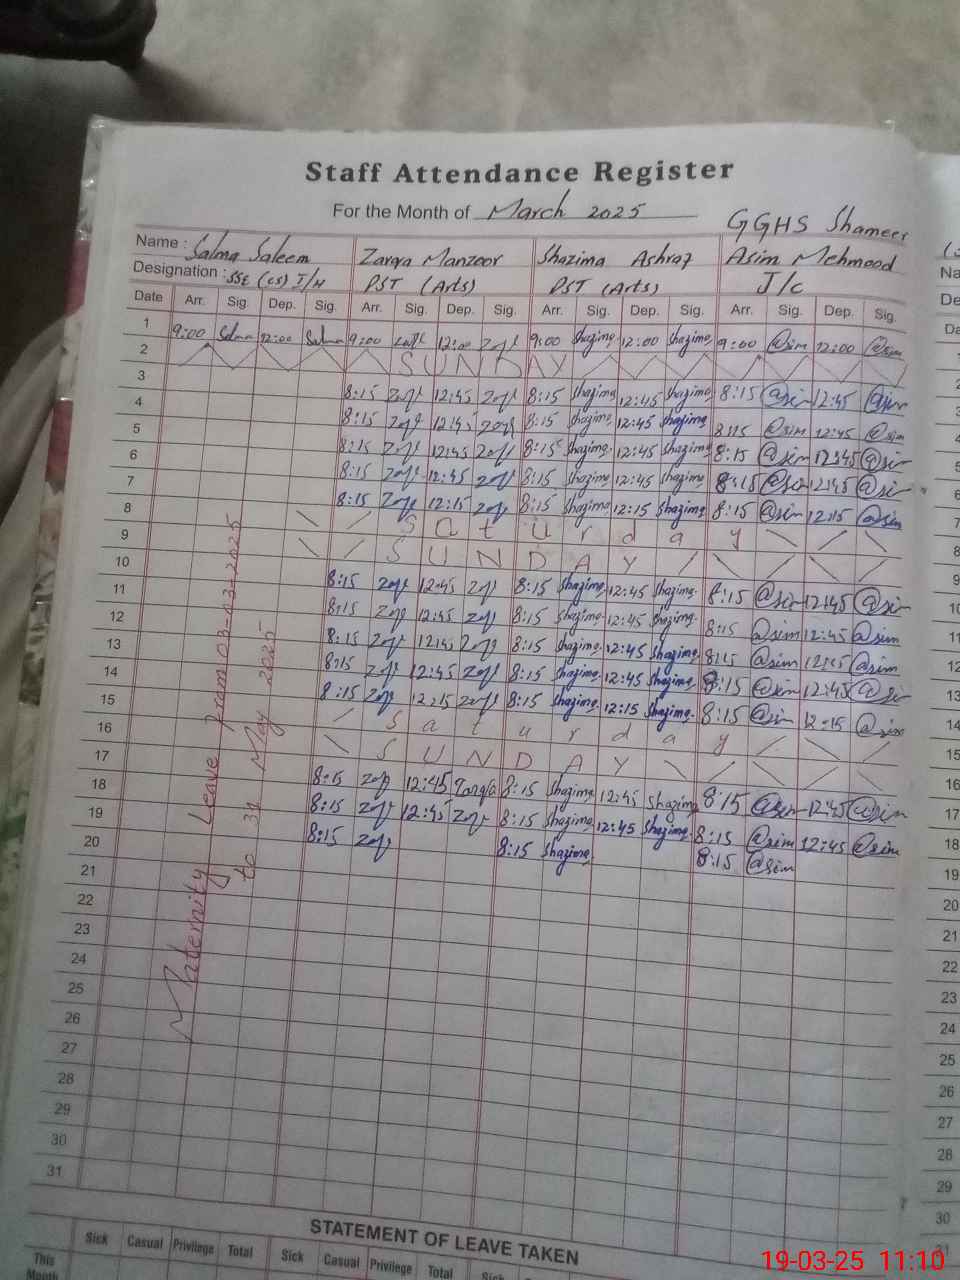 Staff Attendance Register
For the Month of March 2025
GGHS Shameer
Name : Salma Saleem Zarqa Manzoor Shazima Ashraf Asim Mehmood
Designation : SSE (CS) I/H PST (Arts) PST (Arts) J/C
Date Arr. Sig. Dep. Sig. Arr. Sig. Dep. Sig. Arr. Sig. Dep. Sig. Arr. Sig. Dep. Sig.
1 9:00 Salma 12:00 Salma 9:00 12:00 9:00 Shazima 12:00 Shazima 9:00 @sim 12:00 @sim
2 SUNDAY
3 8:15 12:45 8:15 Shazima 12:45 Shazima 8:15 @sim 12:45 @sim
4 8:15 12:45 8:15 Shazima 12:45 Shazima 8:15 @sim 12:45 @sim
5 8:15 12:45 8:15 Shazima 12:45 Shazima 8:15 @sim 12:45 @sim
6 8:15 12:45 8:15 Shazima 12:45 Shazima 8:15 @sim 12:45 @sim
7 8:15 12:15 8:15 Shazima 12:15 Shazima 8:15 @sim 12:15 @sim
8 Saturday
9 SUNDAY
10 8:15 12:45 8:15 Shazima 12:45 Shazima 8:15 @sim 12:45 @sim
11 8:15 12:45 8:15 Shazima 12:45 Shazima 8:15 @sim 12:45 @sim
12 8:15 12:45 8:15 Shazima 12:45 Shazima 8:15 @sim 12:45 @sim
13 8:15 12:45 8:15 Shazima 12:45 Shazima 8:15 @sim 12:45 @sim
14 8:15 12:15 8:15 Shazima 12:15 Shazima 8:15 @sim 12:15 @sim
15 Saturday
16 SUNDAY
17 8:15 12:45 Zarqa 8:15 Shazima 12:45 Shazima 8:15 @sim 12:45 @sim
18 8:15 12:45 8:15 Shazima 12:45 Shazima 8:15 @sim 12:45 @sim
19 8:15 8:15 Shazima 8:15 @sim
20
21
22
23
24
25
26
27
28
29
30
31
Maternity Leave from 03-03-2025
to 31 May 2025
STATEMENT OF LEAVE TAKEN
Sick Casual Privilege Total Sick Casual Privilege Total Sick
This
Month
19-03-25 11:10